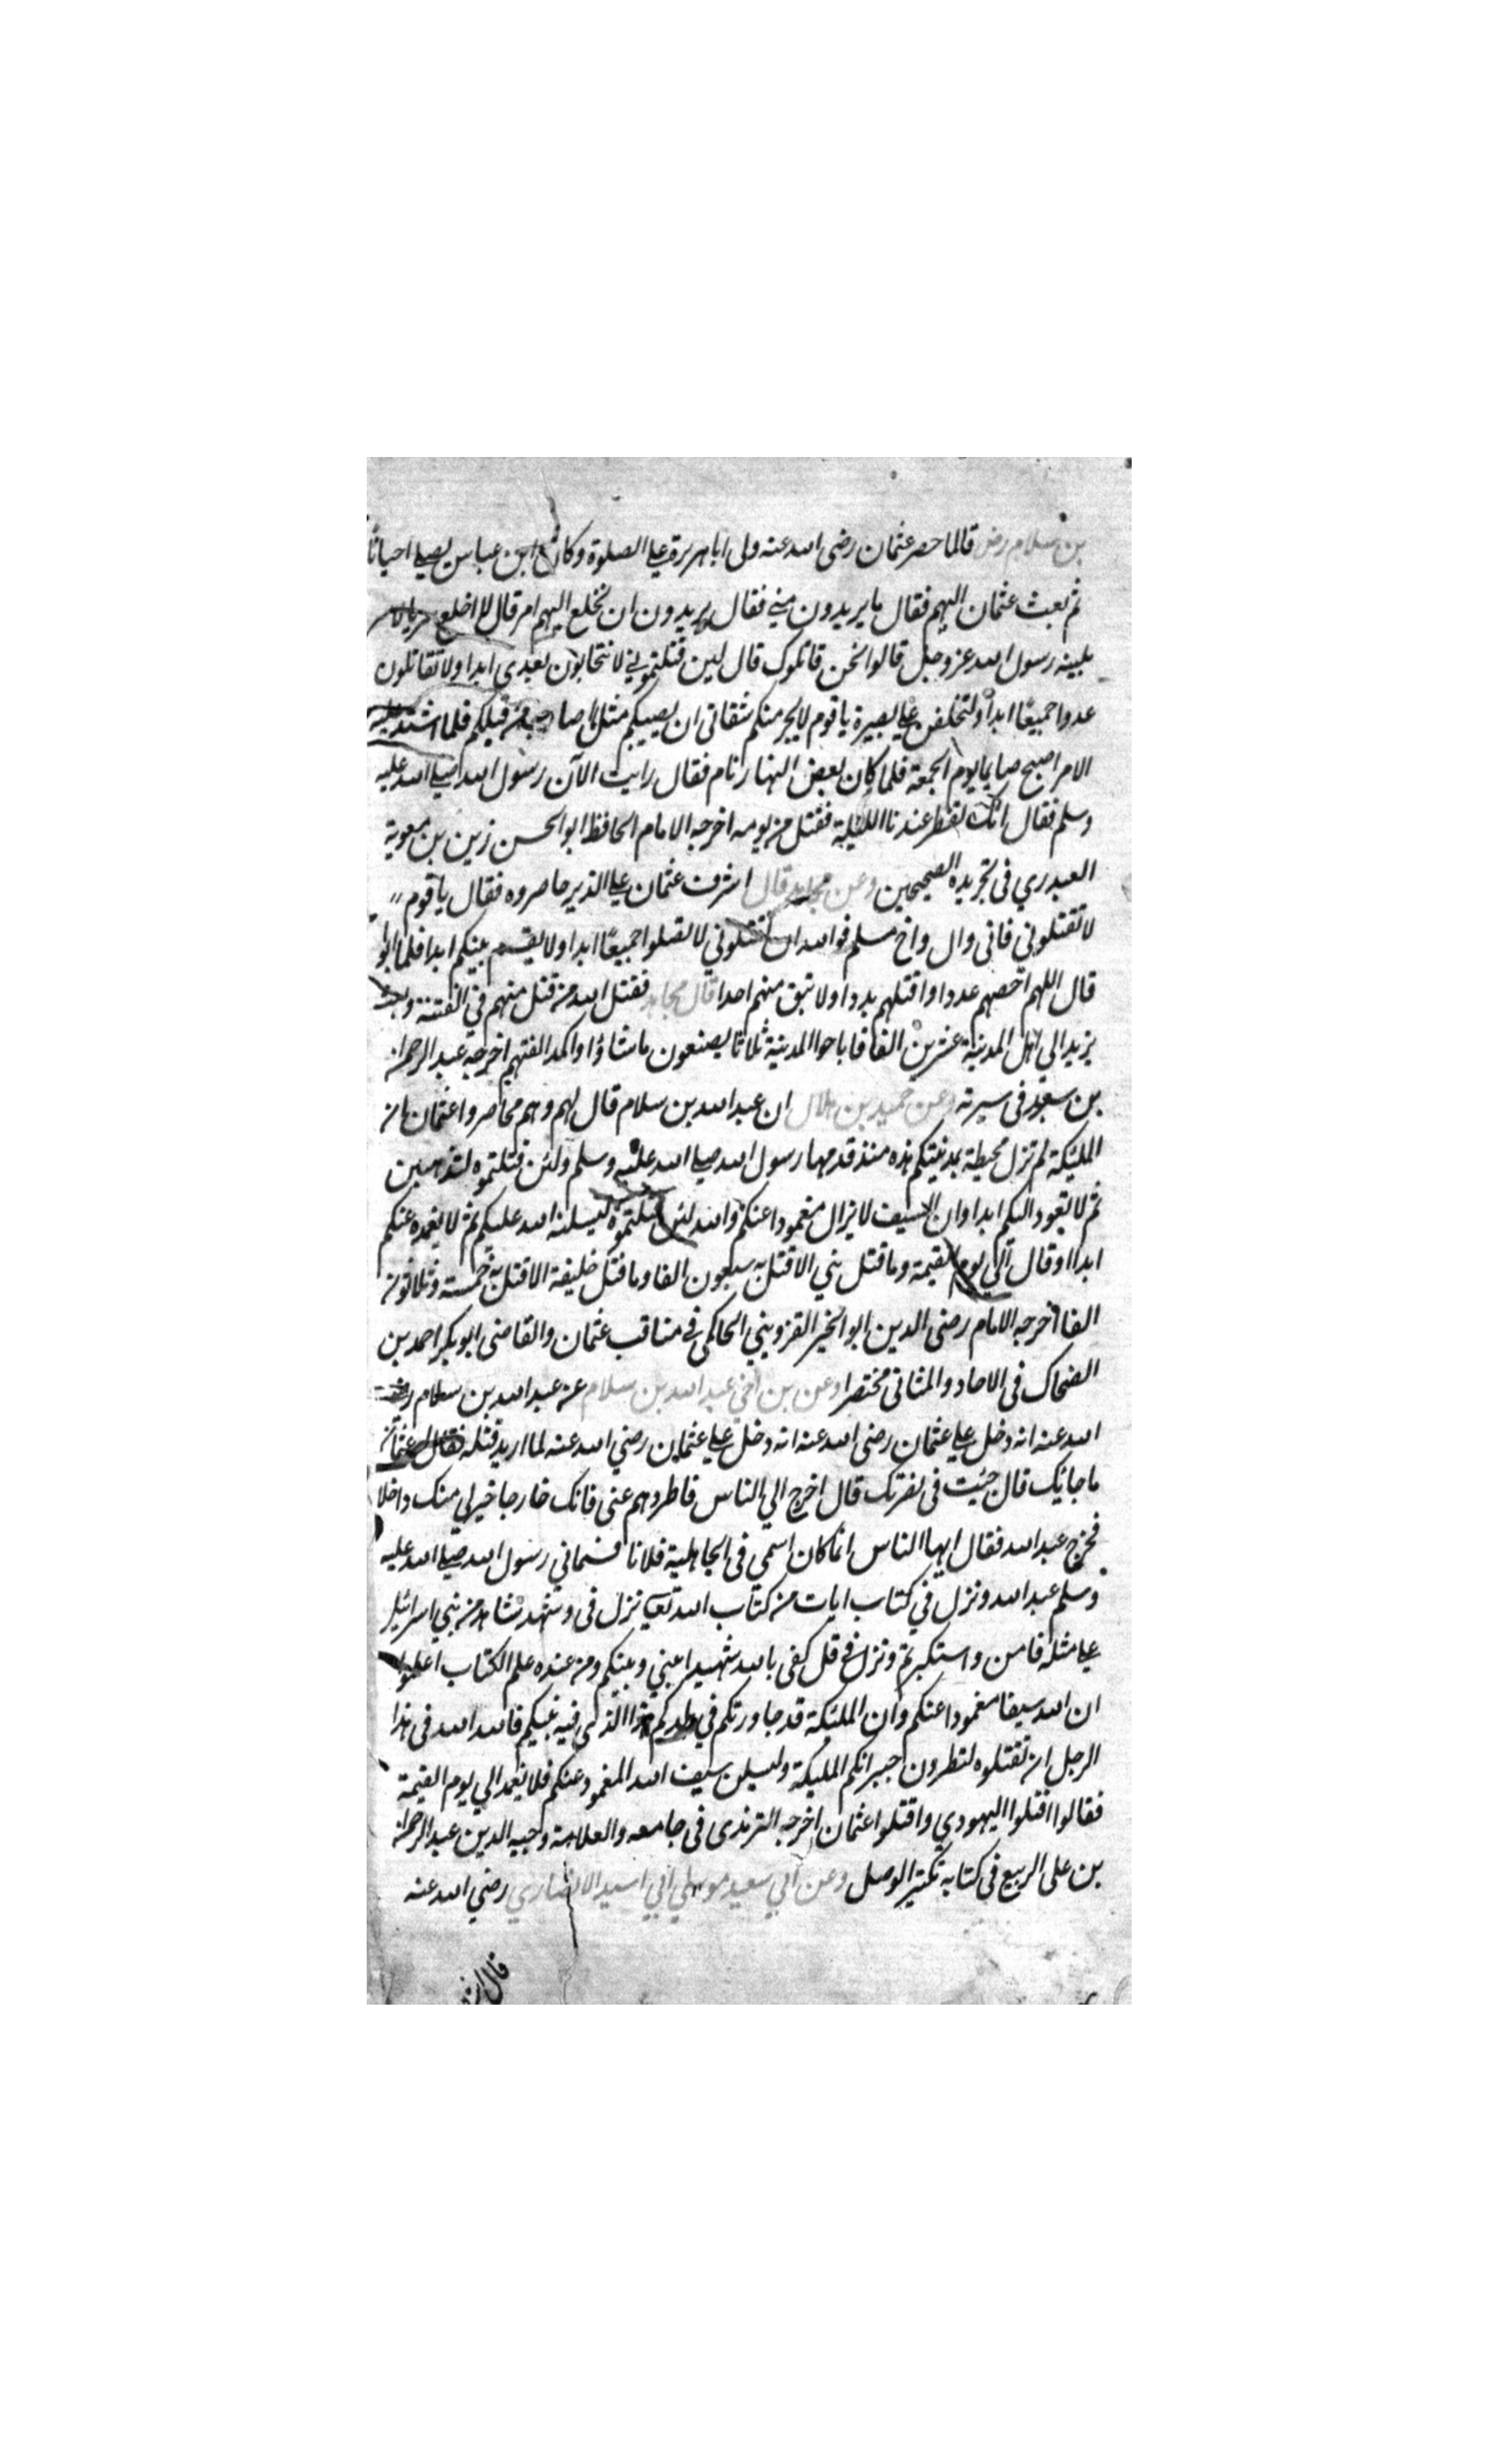 بن سلام رض قال لما حصر عثمان رضى الله عنه ولى ابا هريرة على الصلوة وكان ابن عباس يصلى احيانا
ثم بعث عثمان اليهم فقال ما يريدون منى فقال يريدون ان تخلع اليهم امر قال لا اخلع سربالا سر
بلينه رسول الله عز وجل قالوا نحن قاتلوك قال لين قتلتمونى لا تتحابون بعدى ابدا ولا تقاتلون
عدوا جميعا ابدا ولتختلفن على بصيرة يا قوم لا يجر منكم شقاقى ان يصيبكم مثل ما اصاب من قبلكم فلما اشتد عليه
الامر اصبح صايما يوم الجمعة فلما كان بعض النهار نام فقال رايت الآن رسول الله صلى الله عليه
وسلم فقال انك تفطر عندنا الليلة فقتل من يومه اخرجه الامام الحافظ ابو الحسن رزين بن معوية
العبدري فى تجريده الصحيحين وعن مجاهد قال اشرف عثمان على الذين حاصروه فقال يا قوم
لا تقتلوني فانى وال واخ مسلم فوالله ان تقتلوني لا تصلوا جميعا ابدا ولا يقسم بينكم ابدا فلما ابوا
قال اللهم احصهم عددا واقتلهم بددا ولا تبق منهم احدا قال مجاهد فقتل الله من قتل منهم في الفتنة وبعث
يزيد الى اهل المدينة عشرين الفا فاباحوا المدينة ثلاثا يصنعون ما شاؤا واكمد الفتهم اخرجه عبد الرحمن
بن سعود فى سيرته وعن حميد بن هلال ان عبد الله بن سلام قال لهم وهم محاصروا عثمان ان
المليكة لم تزل محيطة بمدينتكم هذه منذ قدمها رسول الله صلى الله عليه وسلم ولئن قتلتموه لتذهبن
ثم لا يعود اليكم ابدا وان السيف لا يزال مغمودا عنكم والله لئن قتلتموه ليسلنه الله عليكم ثم لا يغمده عنكم
ابدا او قال الى يوم القيمة وما قتل نبي الا قتل به سبعون الفا وما قتل خليفة الا قتل به خمسة وثلاثون
الفا اخرجه الامام رضى الدين ابو الخير القزوينى الحاكمى فى مناقب عثمان والقاضى ابو بكر احمد بن
الضحاك فى الاحاد والمثانى مختصرا وعن بن اخي عبد الله بن سلام عن عبد الله بن سلام رضى
الله عنه انه دخل على عثمان رضى الله عنه انه دخل على عثمان رضي الله عنه لما اريد قتله فقال عثمان
ما جا بك قال جئت فى نصرتك قال اخرج الى الناس فاطردهم عنى فانك خارجا خير لي منك داخلا
فخرج عبد الله فقال ايها الناس انما كان اسمى فى الجاهلية فلانا فسماني رسول الله صلى الله عليه
وسلم عبد الله ونزل في كتاب ايات من كتاب الله تعا نزل فى وشهد شاهد من بني اسرائيل
على مثله فامن واستكبرتم ونزل فى قل كفى بالله شهيدا بيني وبينكم ومن عنده علم الكتاب اعلموا
ان لله سيفا مغمودا عنكم وان المليكة قد جاورتكم في بلدكم هذا الذى فيه نبيكم فالله الله فى هذا
الرجل ان تقتلوه لتطردن جيرانكم المليكة وليسلن سيف الله المغمود عنكم فلا يغمد الى يوم القيمة
فقالوا اقتلوا اليهودي واقتلوا عثمان اخرجه الترمذى فى جامعه والعلامة وجيه الدين عبد الرحمن
بن على الربيع فى كتابه تكثير الوصل وعن ابي سعيد مولي ابي اسيد الانصاري رضي الله عنه
قال اشر